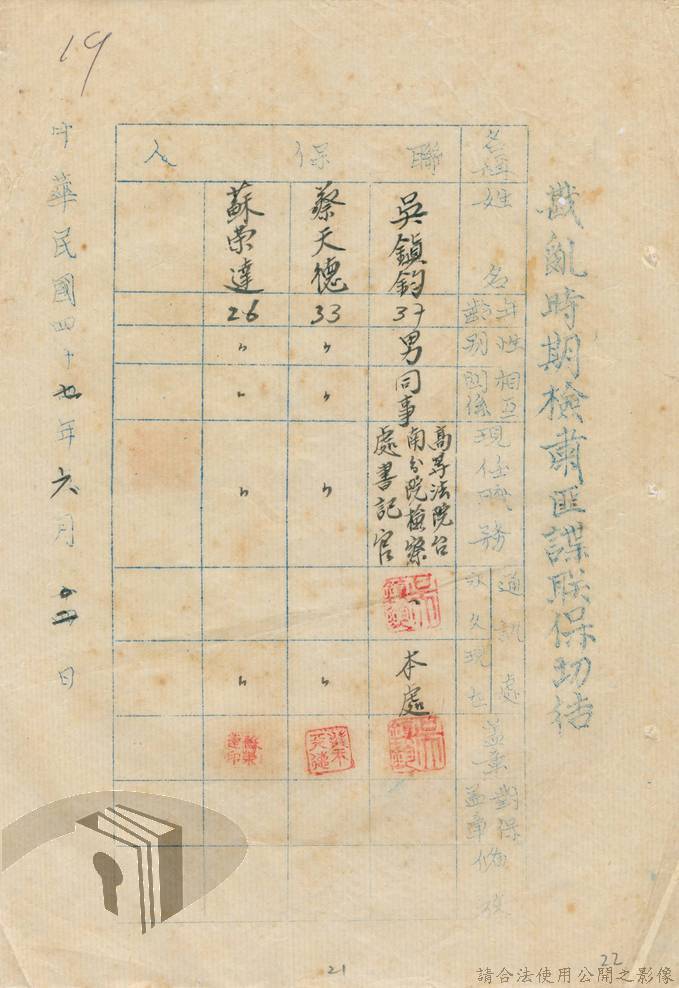 19
戡亂時期檢肅匪諜联保切结
名種
姓名
年齡
性別
相互關係
現任職務
通訊處
永久
現在
蓋章
對保蓋章
備攷
聯保人
吳鎮鈞
37
男
同事
高等法院台
南分院檢察
處書記官
本處
蔡天德
33
〃
〃
〃
〃
蘇榮達
26
〃
〃
〃
〃
中華民國四十七年六月 日
21
22
請合法使用公開之影像